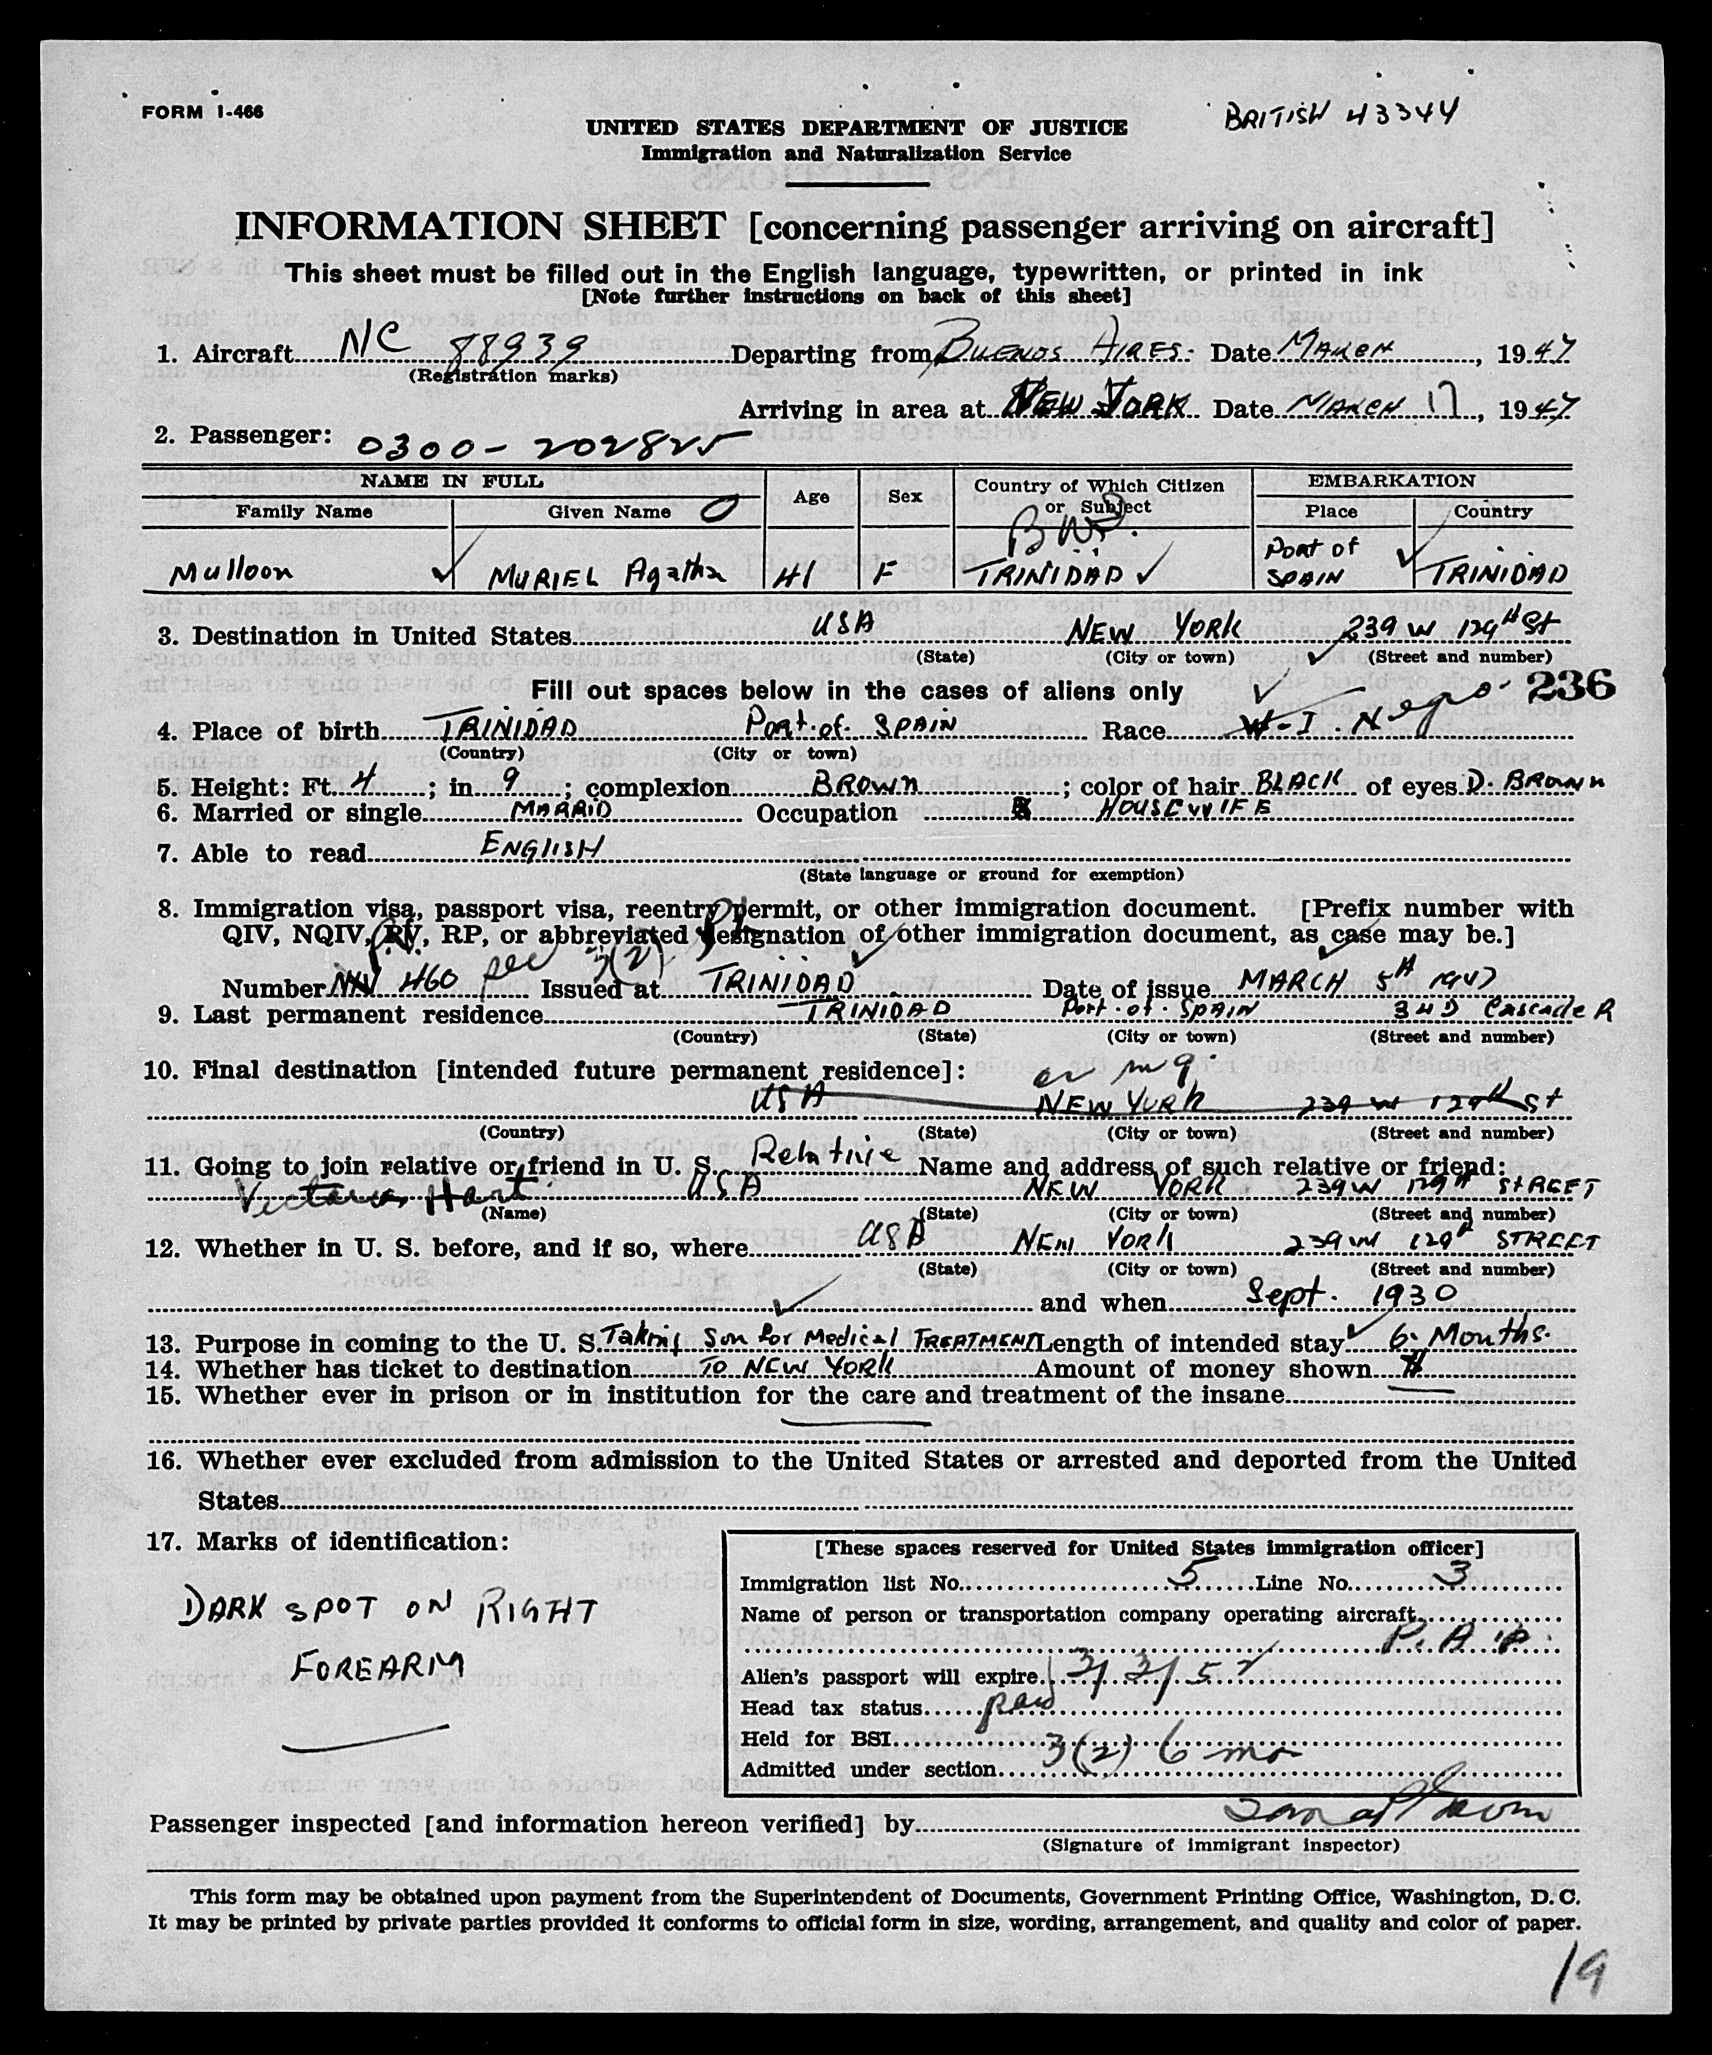 FORM I-466
BRITISH 43344
UNITED STATES DEPARTMENT OF JUSTICE
Immigration and Naturalization Service
INFORMATION SHEET [concerning passenger arriving on aircraft]
This sheet must be filled out in the English language, typewritten, or printed in ink
[Note further instructions on back of this sheet]
1. Aircraft NC 88939 Departing from BUENOS AIRES. Date MARCH, 1947
(Registration marks)
Arriving in area at NEW YORK Date MARCH 17, 1947
2. Passenger: 0300-202825
NAME IN FULL Age Sex Country of Which Citizen or Subject EMBARKATION
Family Name Given Name Place Country
B W I.
Mulloon MURIEL Agatha 41 F TRINIDAD PORT OF SPAIN TRINIDAD
3. Destination in United States USA NEW YORK 239 W 129th St
(State) (City or town) (Street and number)
Fill out spaces below in the cases of aliens only
236
4. Place of birth TRINIDAD Port of SPAIN Race W-I. Negro
(Country) (City or town)
5. Height: Ft. 4; in. 9; complexion BROWN; color of hair BLACK of eyes D. BROWN
6. Married or single MARRID Occupation HOUSEWIFE
7. Able to read ENGLISH
(State language or ground for exemption)
8. Immigration visa, passport visa, reentry permit, or other immigration document. [Prefix number with
QIV, NQIV, RV, RP, or abbreviated designation of other immigration document, as case may be.]
3(2)
Number 460 Issued at TRINIDAD Date of issue MARCH 5th 1947
9. Last permanent residence TRINIDAD Port of SPAIN 34D Cascade R
(Country) (State) (City or town) (Street and number)
10. Final destination [intended future permanent residence]:
USA NEW YORK 239 W 129th St
(Country) (State) (City or town) (Street and number)
11. Going to join relative or friend in U. S. Relative Name and address of such relative or friend:
Hart USA NEW YORK 239 W 129th STREET
(Name) (State) (City or town) (Street and number)
12. Whether in U. S. before, and if so, where USA NEW YORK 239 W 129th STREET
(State) (City or town) (Street and number)
and when Sept. 1930
13. Purpose in coming to the U. S. Taking Son for Medical TREATMENT Length of intended stay 6 Months.
14. Whether has ticket to destination TO NEW YORK Amount of money shown $
15. Whether ever in prison or in institution for the care and treatment of the insane
16. Whether ever excluded from admission to the United States or arrested and deported from the United
States
17. Marks of identification:
DARK SPOT ON RIGHT
FOREARM
[These spaces reserved for United States immigration officer]
Immigration list No. 5 Line No. 3
Name of person or transportation company operating aircraft
P. A. A.
Alien's passport will expire 3/3/52
Head tax status paid
Held for BSI
Admitted under section 3(2) 6 mo
Passenger inspected [and information hereon verified] by
(Signature of immigrant inspector)
This form may be obtained upon payment from the Superintendent of Documents, Government Printing Office, Washington, D. C.
It may be printed by private parties provided it conforms to official form in size, wording, arrangement, and quality and color of paper.
19